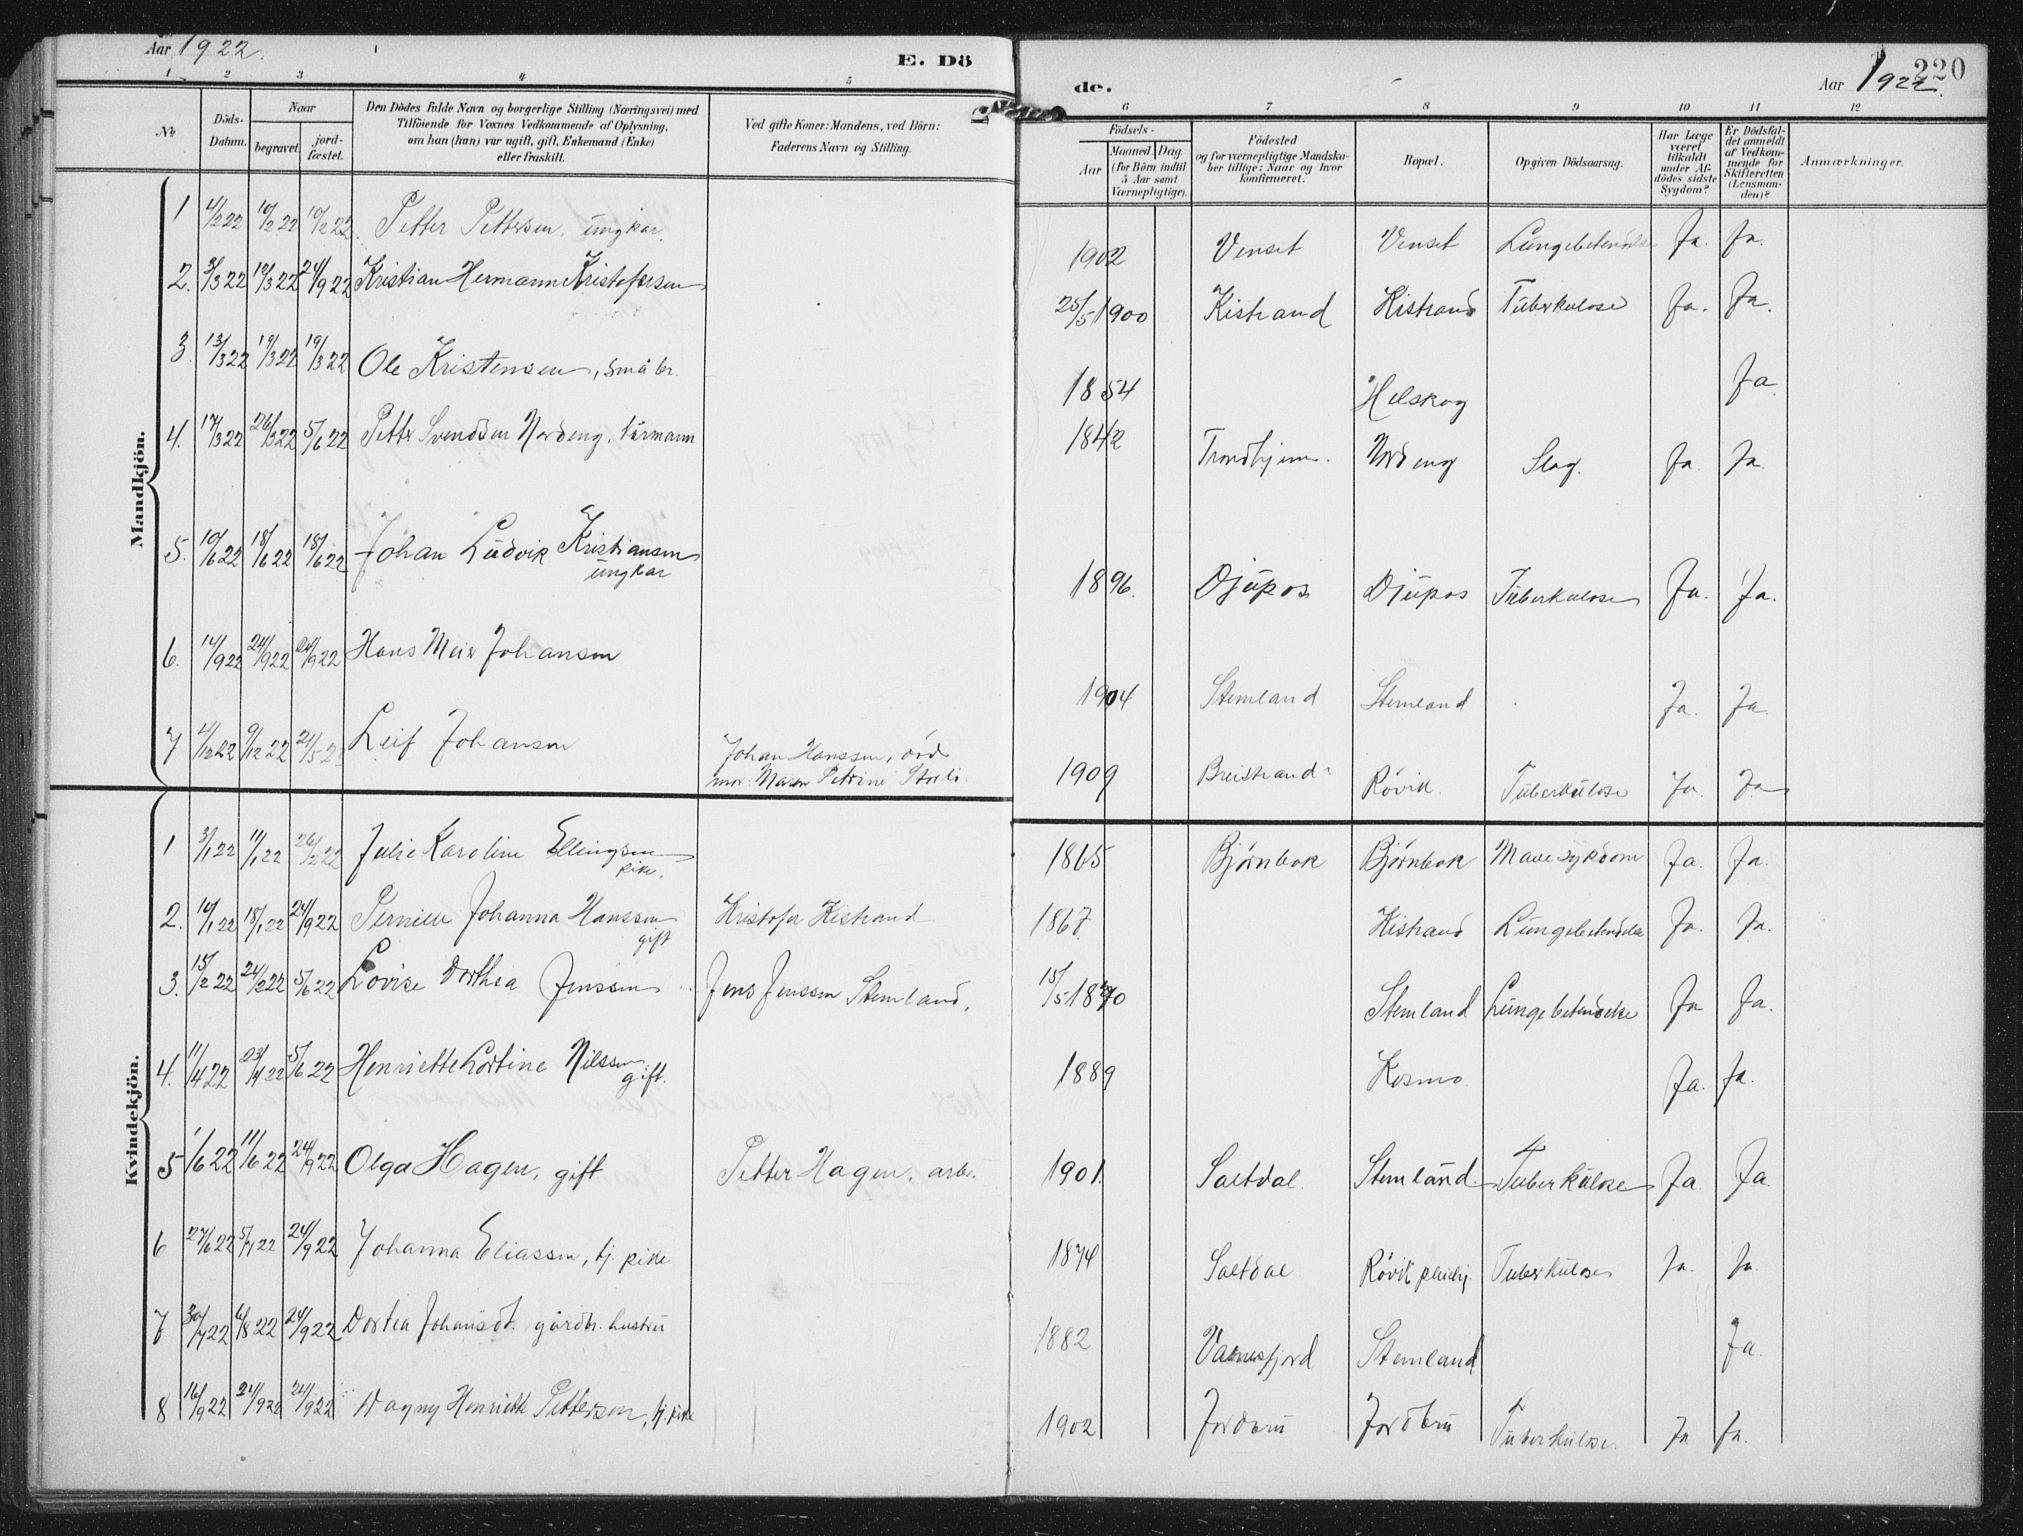 Aar 1922.
E. Dö
1 2 3 4 5
No
Döds-Datum.
Naar
begravet.
jord-fæstet.
Den Dödes fulde Navn og borgerlige Stilling (Næringsvei) med
Tilföiende for Voxnes Vedkommende af Oplysning,
om han (hun) var ugift, gift, Enkemand (Enke)
eller fraskilt.
Ved gifte Koner: Mandens, ved Börn:
Faderens Navn og Stilling.
Mandkjön.
1 4/2 22 10/2 22 10/2 22 Petter Pettersen, ungkar.
2. 3/3 22 12/3 22 24/9 22 Kristian Hermann Kristofersen
3. 13/3 22 19/3 22 19/3 22 Ole Kristensen, småbr.
4. 17/3 22 26/3 22 5/6 22 Petter Svendsen Nordeng,
5. 10/6 22 18/6 22 18/6 22 Johan Ludvik Kristiansen
ungkar
6. 14/9 22 24/9 22 24/9 22 Hans Meier Johansen
7 4/12 22 9/12 22 21/5 23 Leif Johansen Johan Hanssen, död
mor: Maren Petrine
Kvindekjön.
1 3/1 22 11/1 22 26/2 22 Julie Karoline Ellingsen
pike.
2. 10/1 22 18/1 22 24/9 22 Johanna Hanssen Kristofer Kistrand
gift
3. 15/2 22 24/2 22 5/6 22 Lovise Dorthea Jenssen Jens Jenssen Stemland,
4. 11/4 22 23/4 22 5/6 22 Henriette Lortine Nilssen
gift.
5 1/6 22 11/6 22 24/9 22 Olga Hagen, gift Petter Hagen, arb.
6 27/6 22 5/7 22 24/9 22 Johanna Eliassen, tj. pike
7 30/7 22 6/8 22 24/9 22 Dortea Johansdt. gårdbr. hustru
8 16/9 22 24/9 22 24/9 22 Dagny Henriette Pettersen, tj. pike
220
de.
Aar 1922.
6 7 8 9 10 11 12
Födsels-
Aar
Maaned. Dag.
(for Börn indtil
5 Aar samt
Værnepligtige).
Födested
og for værnepligtige Mandska-
ber tillige: Naar og hvor
konfirmeret.
Bopæl.
Opgiven Dödsaarsag.
Har Læge
været
tilkaldt
under Af-
dödes sidste
Sygdom?
Er Dödsfal-
det anmeldt
af Vedkom-
mende for
Skifteretten
(Lensman-
den)?
Anmærkninger.
1902 Venset Venset Lungebetendelse Ja. Ja.
25/5 1900 Kistrand Kistrand Tuberkulose Ja. Ja.
1854 Helskog Ja
1842 Trondhjem. Nordeng Slag. Ja. Ja.
1896. Djupos Djupos Tuberkulose Ja. Ja.
1904 Stemland Stemland Ja. Ja.
1909 Breistrand Rövik. Tuberkulose Ja. Ja
1865 Björnbak Björnbak Mavesykdom Ja. Ja.
1867. Kistrand Lungebetendelse Ja. Ja.
15/5 1870 Stemland Lungebetendelse Ja Ja.
1889 Kosmo. Ja. Ja.
1901. Saltdal. Stemland. Tuberkulose Ja. Ja.
1874 Saltdal Rövik pleiehj. Tuberkulose Ja. Ja.
1882 Valnesfjord Stemland Ja.
1902 Jordbru Jordbru Tuberkulose. Ja Ja.